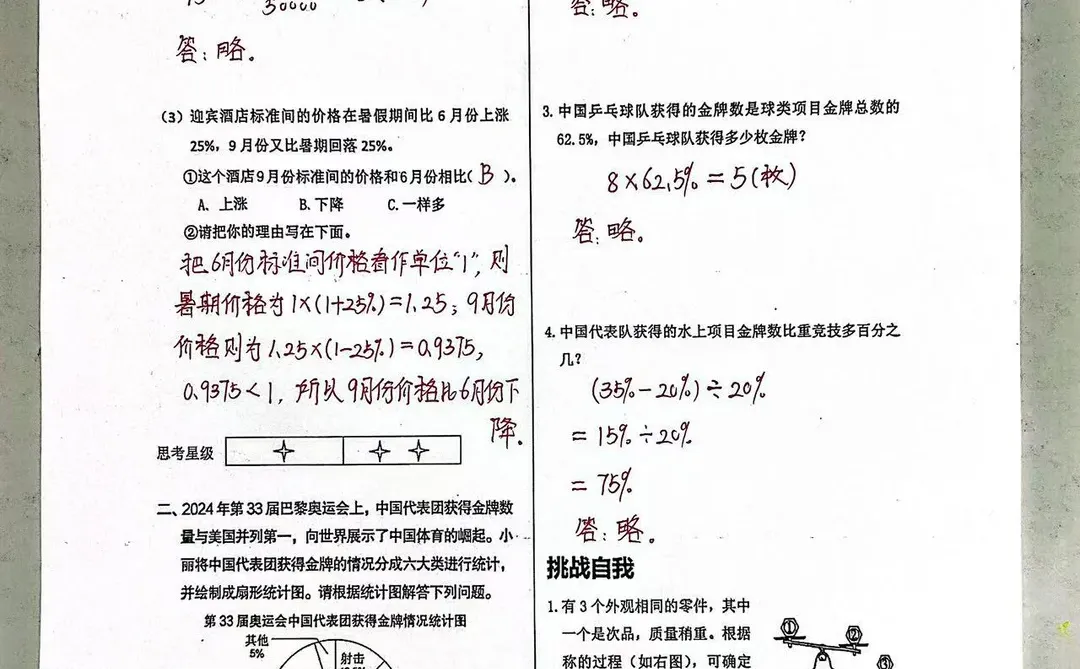 30000
答：略。
(3) 迎宾酒店标准间的价格在暑假期间比6月份上涨
25%，9月份又比暑期回落25%。
①这个酒店9月份标准间的价格和6月份相比( B )。
A、上涨 B.下降 C.一样多
②请把你的理由写在下面。
把6月份标准间价格看作单位"1"，则
暑期价格为1×(1+25%)=1.25；9月份
价格则为1.25×(1-25%)=0.9375，
0.9375<1，所以9月份价格比6月份下
降。
思考星级
二、2024年第33届巴黎奥运会上，中国代表团获得金牌数
量与美国并列第一，向世界展示了中国体育的崛起。小
丽将中国代表团获得金牌的情况分成六大类进行统计，
并绘制成扇形统计图。请根据统计图解答下列问题。
第33届奥运会中国代表团获得金牌情况统计图
其他
5%
射击
答：略。
3.中国乒乓球队获得的金牌数是球类项目金牌总数的
62.5%，中国乒乓球队获得多少枚金牌？
8×62.5%=5(枚)
答：略。
4.中国代表队获得的水上项目金牌数比重竞技多百分之
几？
(35%-20%)÷20%
=15%÷20%
=75%
答：略。
挑战自我
1.有3个外观相同的零件，其中
一个是次品，质量稍重。根据
称的过程（如右图），可确定
①
②
③